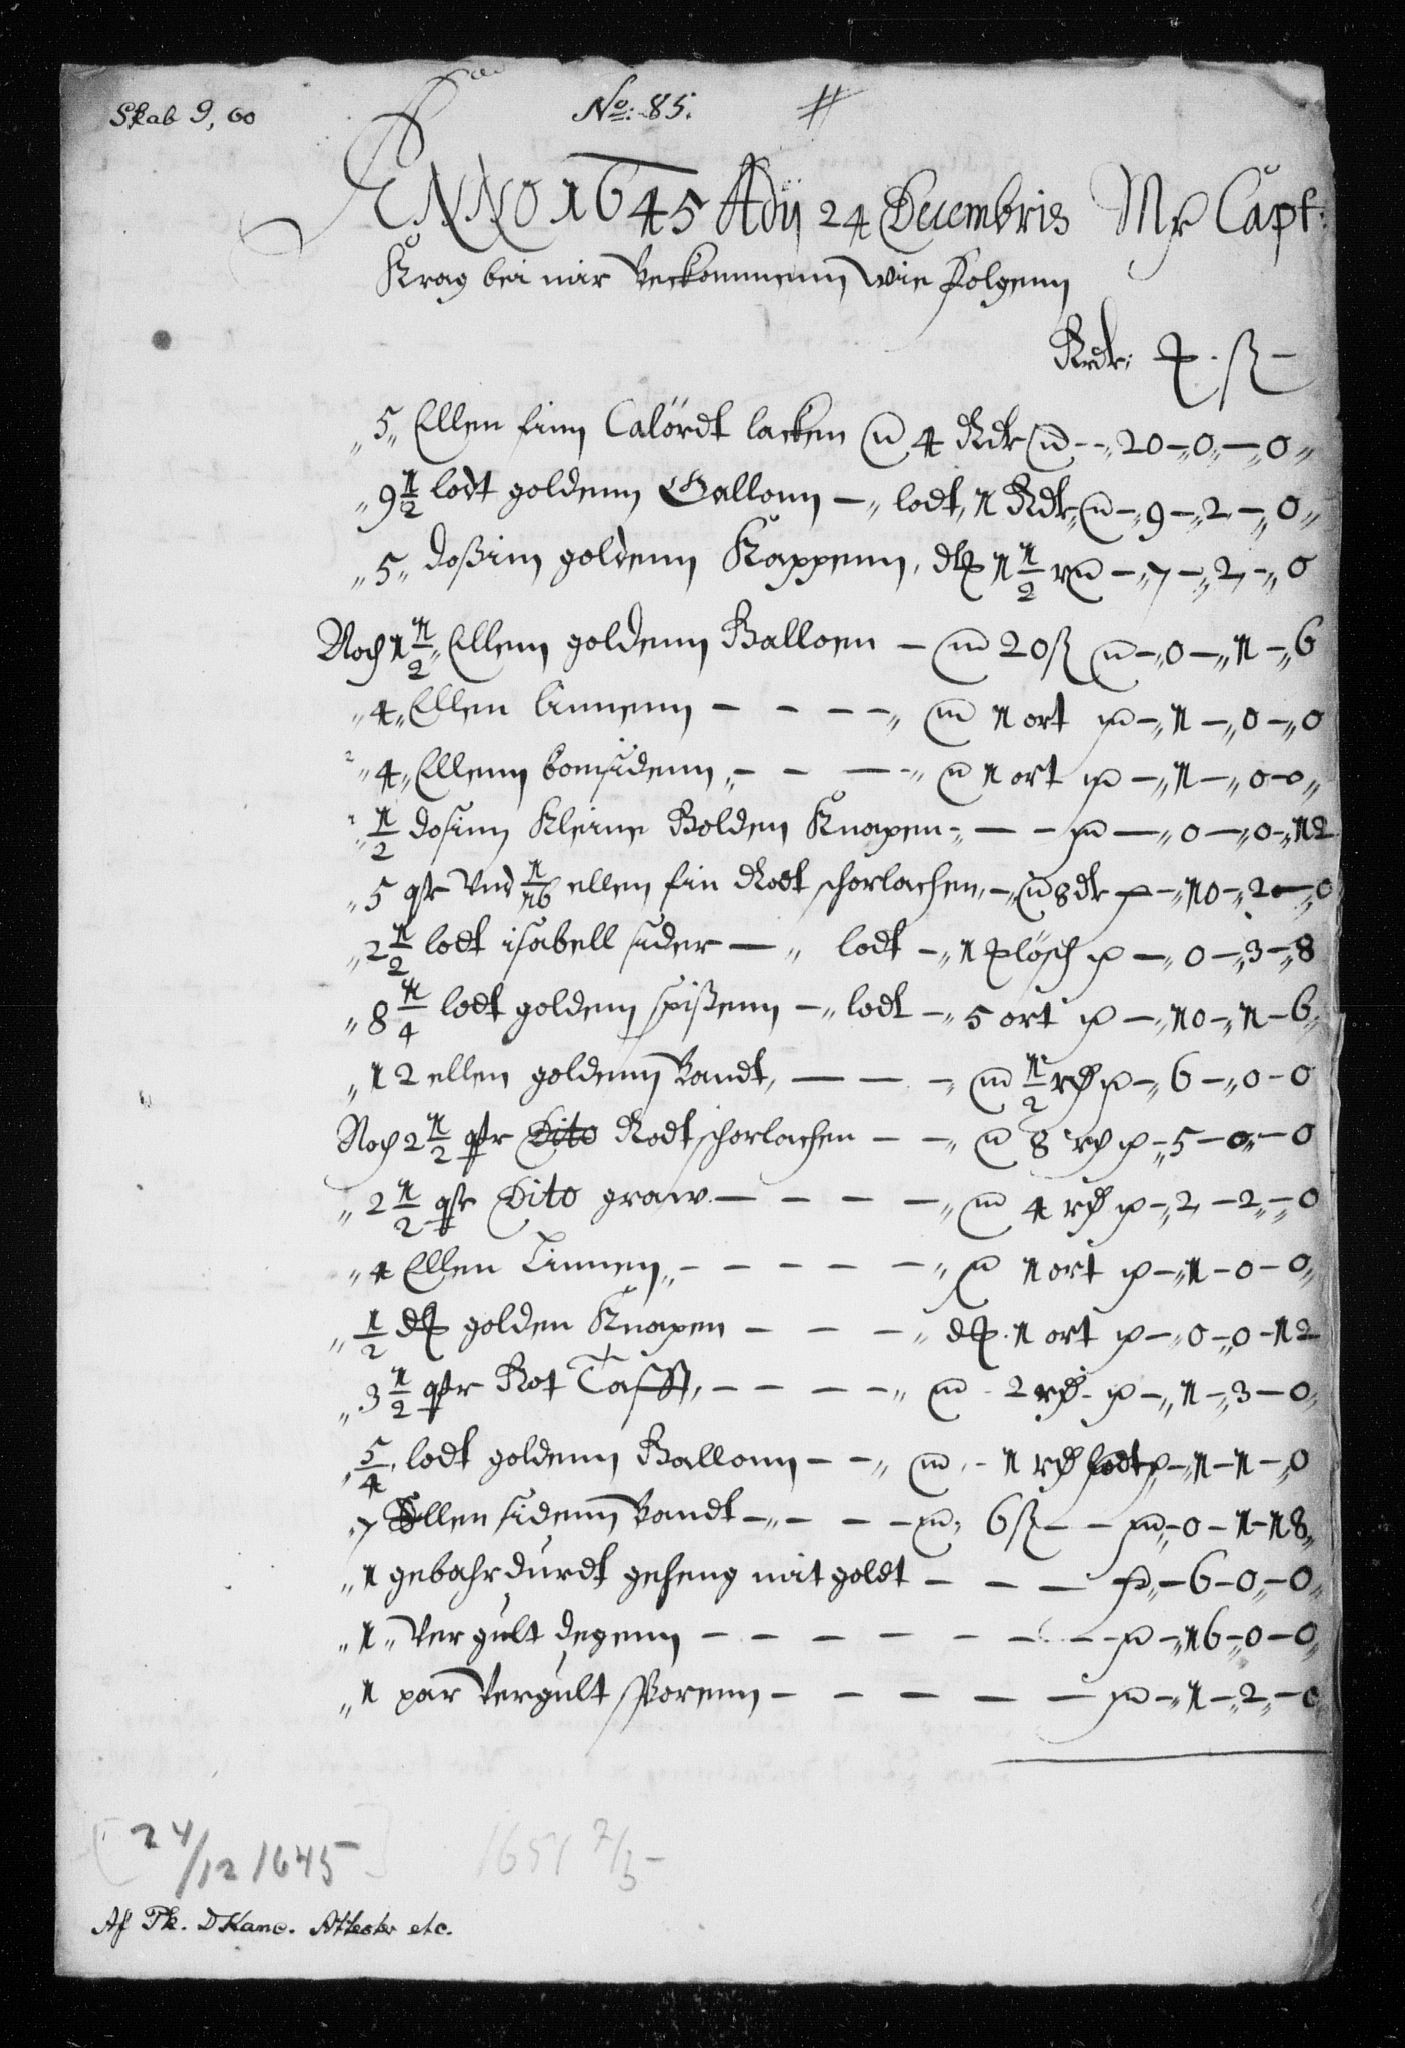 Skab 9, 60
No: 85.
ANNO 1645 Adij 24 Decembris Mr Capt:
Krag bei mir beckommenn wie folgenn
Rdr: ß
5 Ellen finn Calördt lacken 4 Rdr 20 - 0 - 0
9 1/2 lodt goldenn Gallonn lodt 1 Rdr 9 - 2 - 0
5 doßim goldenn Knappenn, 1 1/2 7 - 2 - 0
Noch 1 1/2 Ellenn goldenn Galloen 20 ß 0 - 1 - 6
4 Ellen linnenn 1 ort 1 - 0 - 0
4 Ellenn bomsidenn 1 ort 1 - 0 - 0
1/2 dosinn Kleine Golden Knapen 0 - 0 - 12
5 qtr vnd 1/16 ellen fin Rodt schorlachen 8 dr 10 - 2 - 0
2 1/2 lodt isabell sider lodt 1 0 - 3 - 8
8 1/4 lodt goldenn spißenn lodt 5 ort 10 - 1 - 6
12 ellen goldenn bandt 1/2 6 - 0 - 0
Noch 2 1/2 qtr Dito Rodt schorlachen 8 5 - 0 - 0
2 1/2 qtr Dito graw 4 2 - 2 - 0
4 Ellen Linnen 1 ort 1 - 0 - 0
1/2 golden Knapen 1 ort 0 - 0 - 12
3 1/2 qtr Rot Tafft 2 1 - 3 - 0
5/4 lodt goldenn Gallonn 1 lodt 1 - 1 - 0
7 Ellen sidenn bandt 6 ß 0 - 1 - 18
1 gebahrdurdt geheng mit goldt 6 - 0 - 0
1 vergult degenn 16 - 0 - 0
1 par vergult sporenn 1 - 2 - 0
[24/12 1645] 1651 7/3
Af Tk. DKanc. Attester etc.